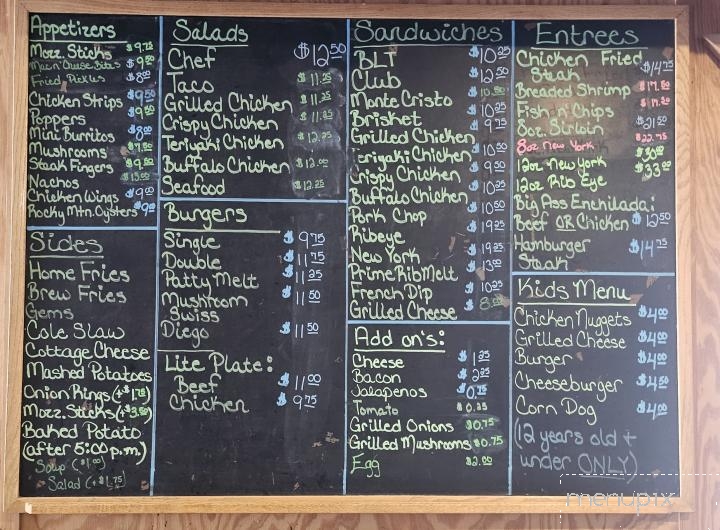 Appetizers
Mozz. Sticks $9.75
Mac n' Cheese Bites $9.50
Fried Pickles $8.00
Chicken Strips $9.50
Poppers $9.50
Mini Burritos $8.00
Mushrooms $7.50
Steak Fingers $9.50
Nachos
Chicken Wings $9.00
Rocky Mtn. Oysters $9.00
Sides
Home Fries
Brew Fries
Gems
Cole Slaw
Cottage Cheese
Mashed Potatoes
Onion Rings (+$1.75)
Mozz. Sticks (+$3.50)
Baked Potato
(after 5:00 p.m.)
Soup ($1.00)
Salad (+$1.75)
Salads
Chef $12.50
Taco $11.25
Grilled Chicken $11.25
Crispy Chicken $11.25
Teriyaki Chicken $12.25
Buffalo Chicken $12.00
Seafood $12.25
Burgers
Single $9.75
Double $11.75
Patty Melt $11.25
Mushroom $11.50
Swiss
Diego $11.50
Lite Plate:
Beef $11.00
Chicken $9.75
Sandwiches
BLT $10.25
Club $12.50
Monte Cristo 10.50
Brisket 10.25
Grilled Chicken 9.75
Teriyaki Chicken 10.50
Crispy Chicken 9.50
Buffalo Chicken 10.25
Pork Chop 10.50
Ribeye 19.25
New York 19.25
Prime Rib Melt 13.00
French Dip 10.25
Grilled Cheese $8.00
Add on's:
Cheese $1.25
Bacon $2.25
Jalapenos $0.75
Tomato $0.25
Grilled Onions $0.75
Grilled Mushrooms $0.75
Egg $2.00
Entrees
Chicken Fried $14.75
Steak
Breaded Shrimp $17.50
Fish n' Chips $17.25
8oz. Sirloin $21.50
8oz New York $22.75
12oz New York $30.00
12oz Rib Eye $33.00
Big Ass Enchilada:
Beef OR Chicken $12.50
Hamburger $14.75
Steak
Kids Menu
Chicken Nuggets $4.00
Grilled Cheese $4.00
Burger $4.00
Cheeseburger $4.50
Corn Dog $4.00
(12 years old +
under ONLY)
menupix